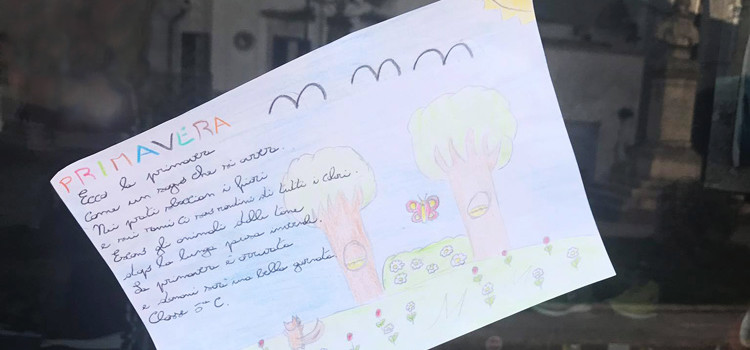 PRIMAVERA
Ecco la primavera
come un sogno che si avvera.
Nei prati sbocciano i fiori
e sui rami ci sono nidi di tutti i colori.
Escono gli animali dalle tane
dopo la lunga pausa invernale.
La primavera è arrivata
e domani sarà una bella giornata.
Classe 5ª C.